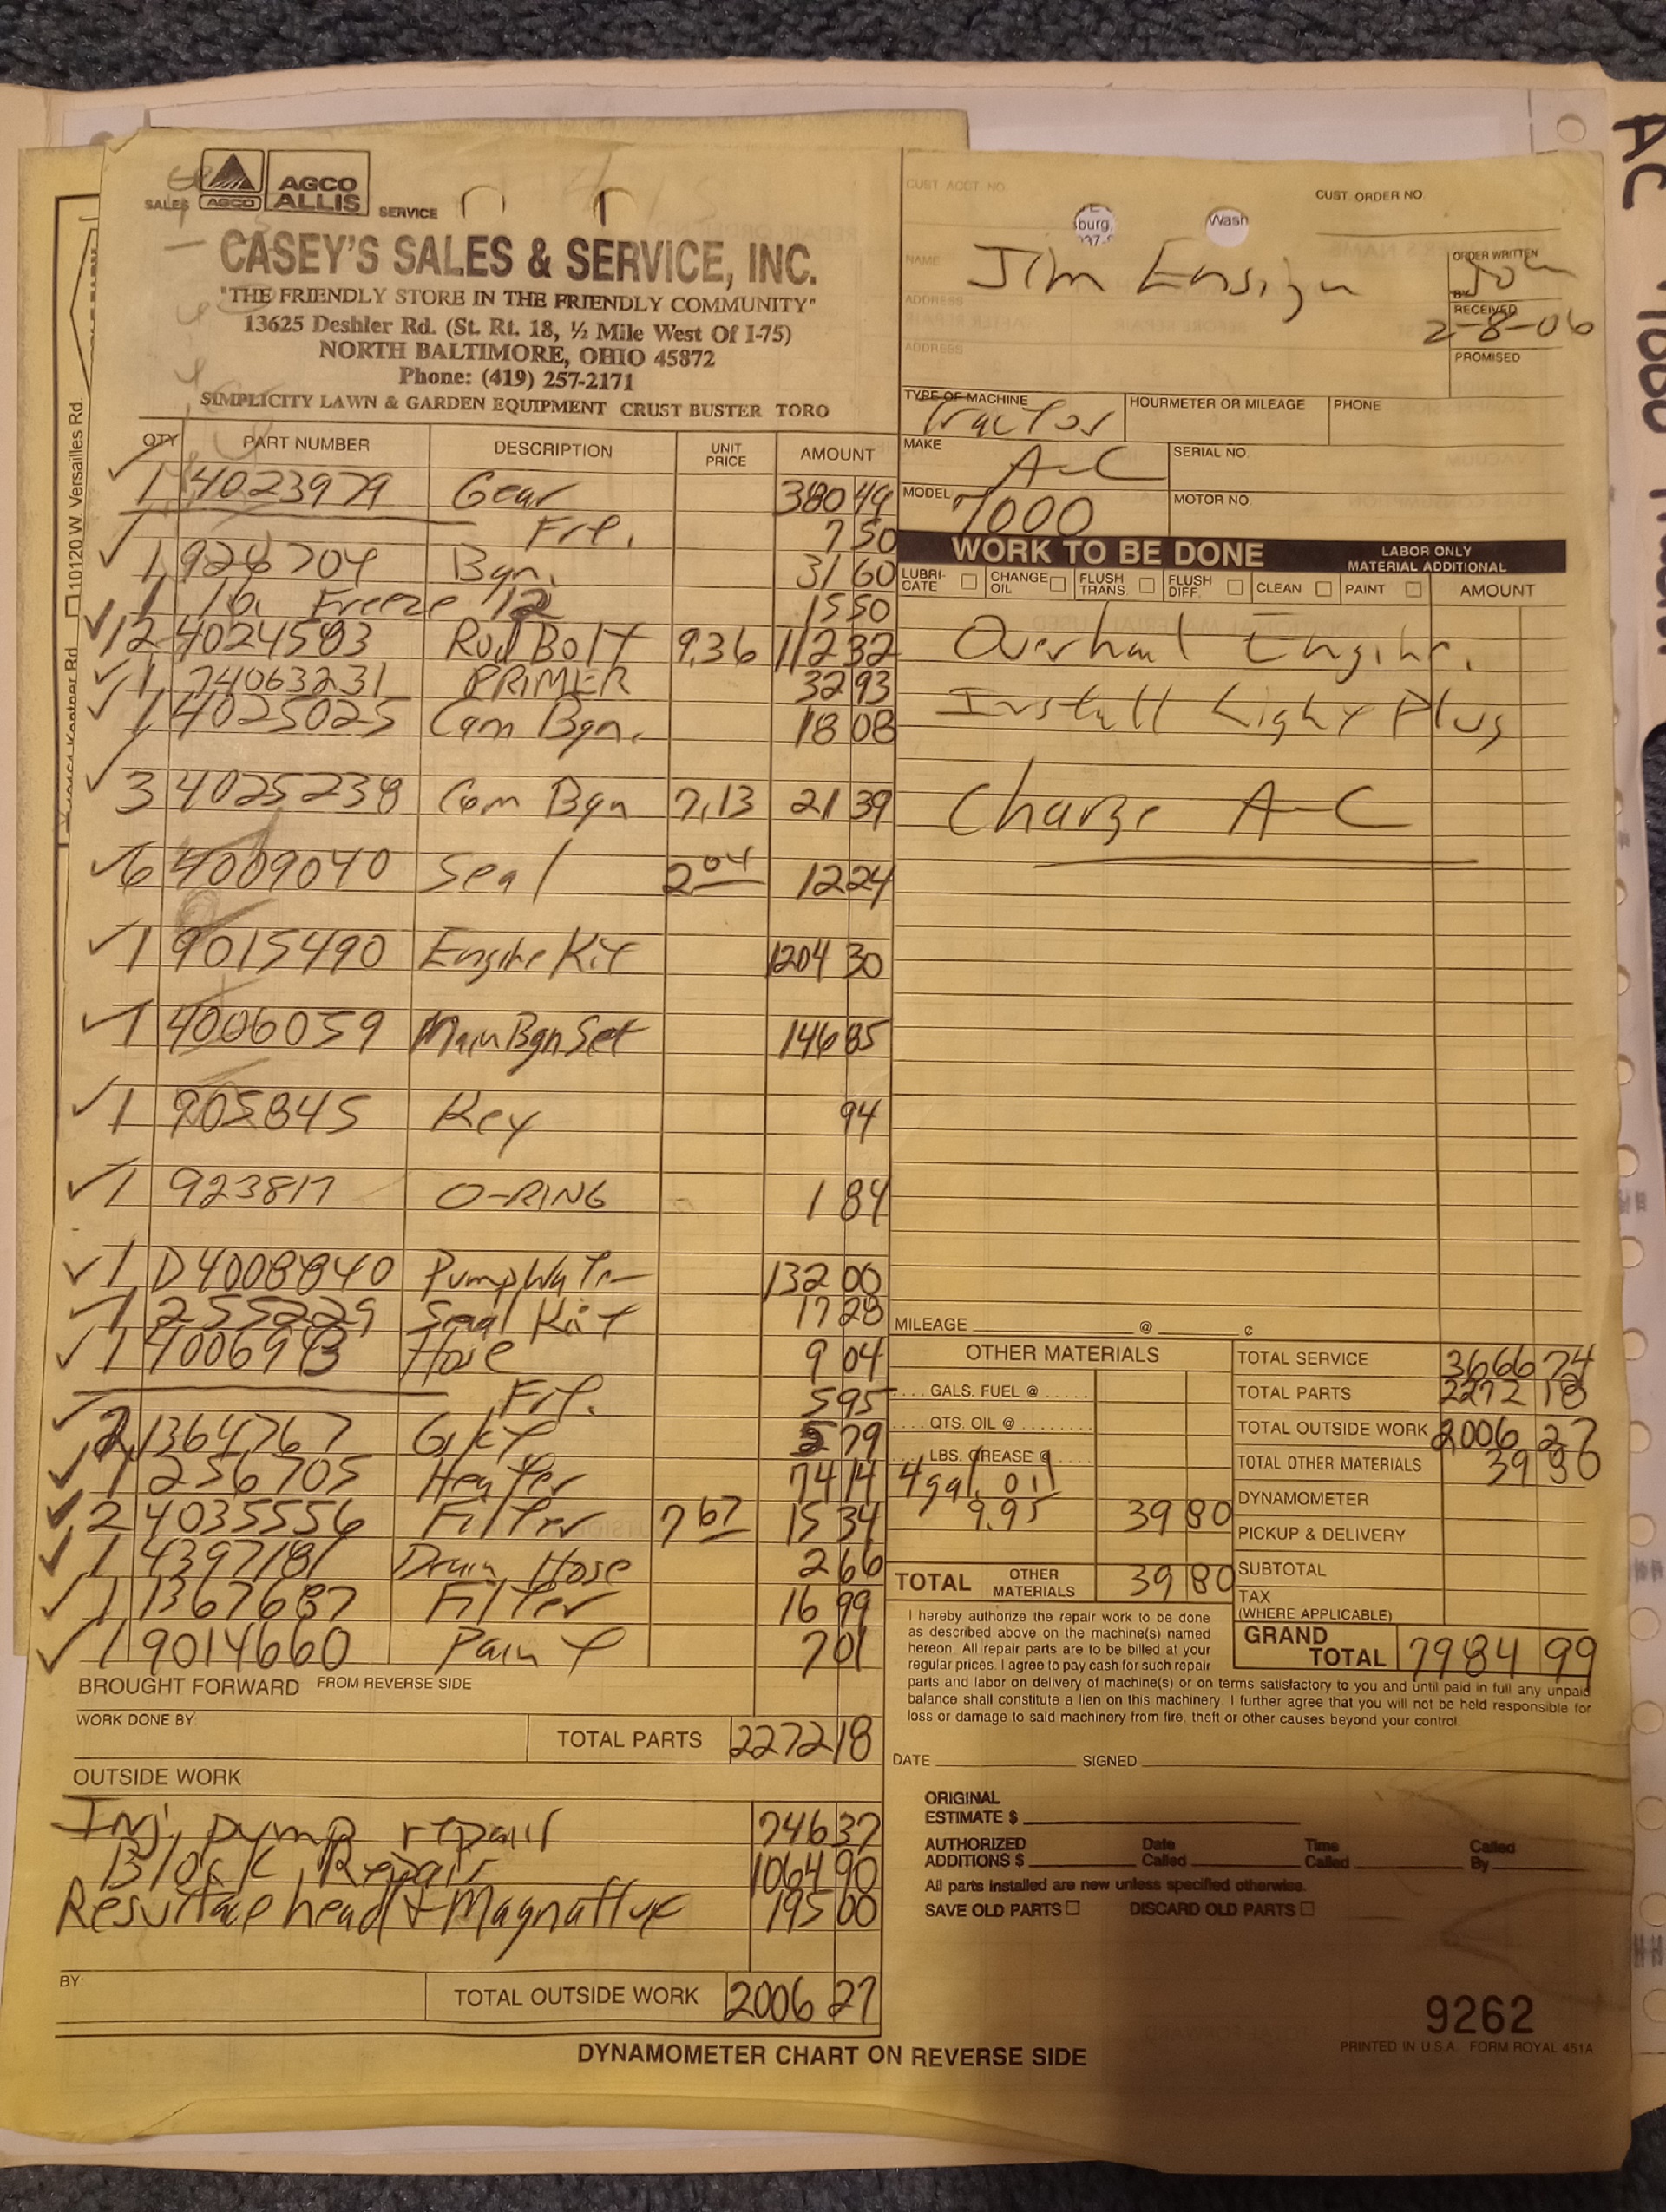 AGCO
AGCO ALLIS
SALES
SERVICE
CASEY'S SALES & SERVICE, INC.
"THE FRIENDLY STORE IN THE FRIENDLY COMMUNITY"
13625 Deshler Rd. (St. Rt. 18, ½ Mile West Of I-75)
NORTH BALTIMORE, OHIO 45872
Phone: (419) 257-2171
SIMPLICITY LAWN & GARDEN EQUIPMENT CRUST BUSTER TORO
QTY PART NUMBER DESCRIPTION UNIT PRICE AMOUNT
1 4023979 Gear 380 49
Frt. 7 50
1 926704 Bgn. 31 60
1 lb. Freeze 12 15 50
12 4024583 Rod Bolt 9.36 112 32
1 74063231 PRIMER 32 93
1 4025025 Cam Bgn. 18 08
3 4025238 Cam Bgn 7.13 21 39
6 4009040 Seal 2 04 12 24
1 9015490 Engine Kit 1204 30
1 4006059 Main Bgn Set 146 85
1 905845 Key 94
1 923817 O-RING 1 84
1 D4008840 Pump Watr 132 00
1 255229 Seal Kit 17 28
1 Hose 9 04
Frt. 5 95
2 1364767 Gskt 5 79
1 256705 Heater 74 14
2 4035556 Filter 7 67 15 34
1 4397181 Drain Hose 2 66
1 1367687 Filter 16 99
1 9014660 Paint 7 01
BROUGHT FORWARD FROM REVERSE SIDE
WORK DONE BY:
TOTAL PARTS 2272 18
OUTSIDE WORK
Inj. pump repair 746 37
Block Repair 1064 90
Resurface head + Magnaflux 195 00
BY:
TOTAL OUTSIDE WORK 2006 27
CUST. ACCT. NO.
CUST. ORDER NO.
burg,
Wash
NAME Jim Ensign
ORDER WRITTEN BY John
ADDRESS
RECEIVED 2-8-06
ADDRESS
PROMISED
TYPE OF MACHINE Tractor
HOURMETER OR MILEAGE
PHONE
MAKE A-C
SERIAL NO.
MODEL 7000
MOTOR NO.
WORK TO BE DONE
LABOR ONLY
MATERIAL ADDITIONAL
LUBRI-CATE CHANGE OIL FLUSH TRANS FLUSH DIFF. CLEAN PAINT AMOUNT
Overhaul Engine.
Install Light Plug
Charge A-C
MILEAGE @ ¢
OTHER MATERIALS
GALS. FUEL @
QTS. OIL @
LBS. GREASE @
4 gal. oil
9.95 39 80
TOTAL OTHER MATERIALS 39 80
TOTAL SERVICE 3666 74
TOTAL PARTS 2272 18
TOTAL OUTSIDE WORK 2006 27
TOTAL OTHER MATERIALS 39 80
DYNAMOMETER
PICKUP & DELIVERY
SUBTOTAL
TAX
(WHERE APPLICABLE)
GRAND TOTAL 7984 99
I hereby authorize the repair work to be done
as described above on the machine(s) named
hereon. All repair parts are to be billed at your
regular prices. I agree to pay cash for such repair
parts and labor on delivery of machine(s) or on terms satisfactory to you and until paid in full any unpaid
balance shall constitute a lien on this machinery. I further agree that you will not be held responsible for
loss or damage to said machinery from fire, theft or other causes beyond your control.
DATE SIGNED
ORIGINAL
ESTIMATE $
AUTHORIZED ADDITIONS $ Date Called Time Called Called By
All parts installed are new unless specified otherwise.
SAVE OLD PARTS DISCARD OLD PARTS
9262
PRINTED IN U.S.A. FORM ROYAL 451A
DYNAMOMETER CHART ON REVERSE SIDE
10120 W. Versailles Rd.
AC